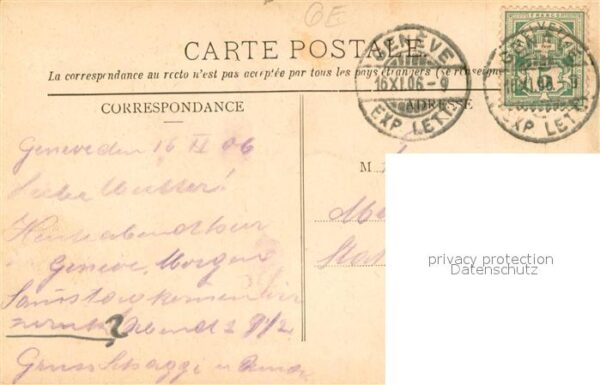 GE
CARTE POSTALE
La correspondance au recto n'est pas acceptée par tous les pays étrangers (se renseigne
CORRESPONDANCE
ADRESSE
GENÈVE
16.XI.06-9
EXP. LETT
GENÈVE
XI.06
9
EXP. LETT
FRANCO
5
M
Geneve den 16 XI 06
Liebe Mutter!
Heute abend hier
Geneve, Morgen
Samstag kommen wir
zurück Abend 9 1/2
Gruss
privacy protection
Datenschutz